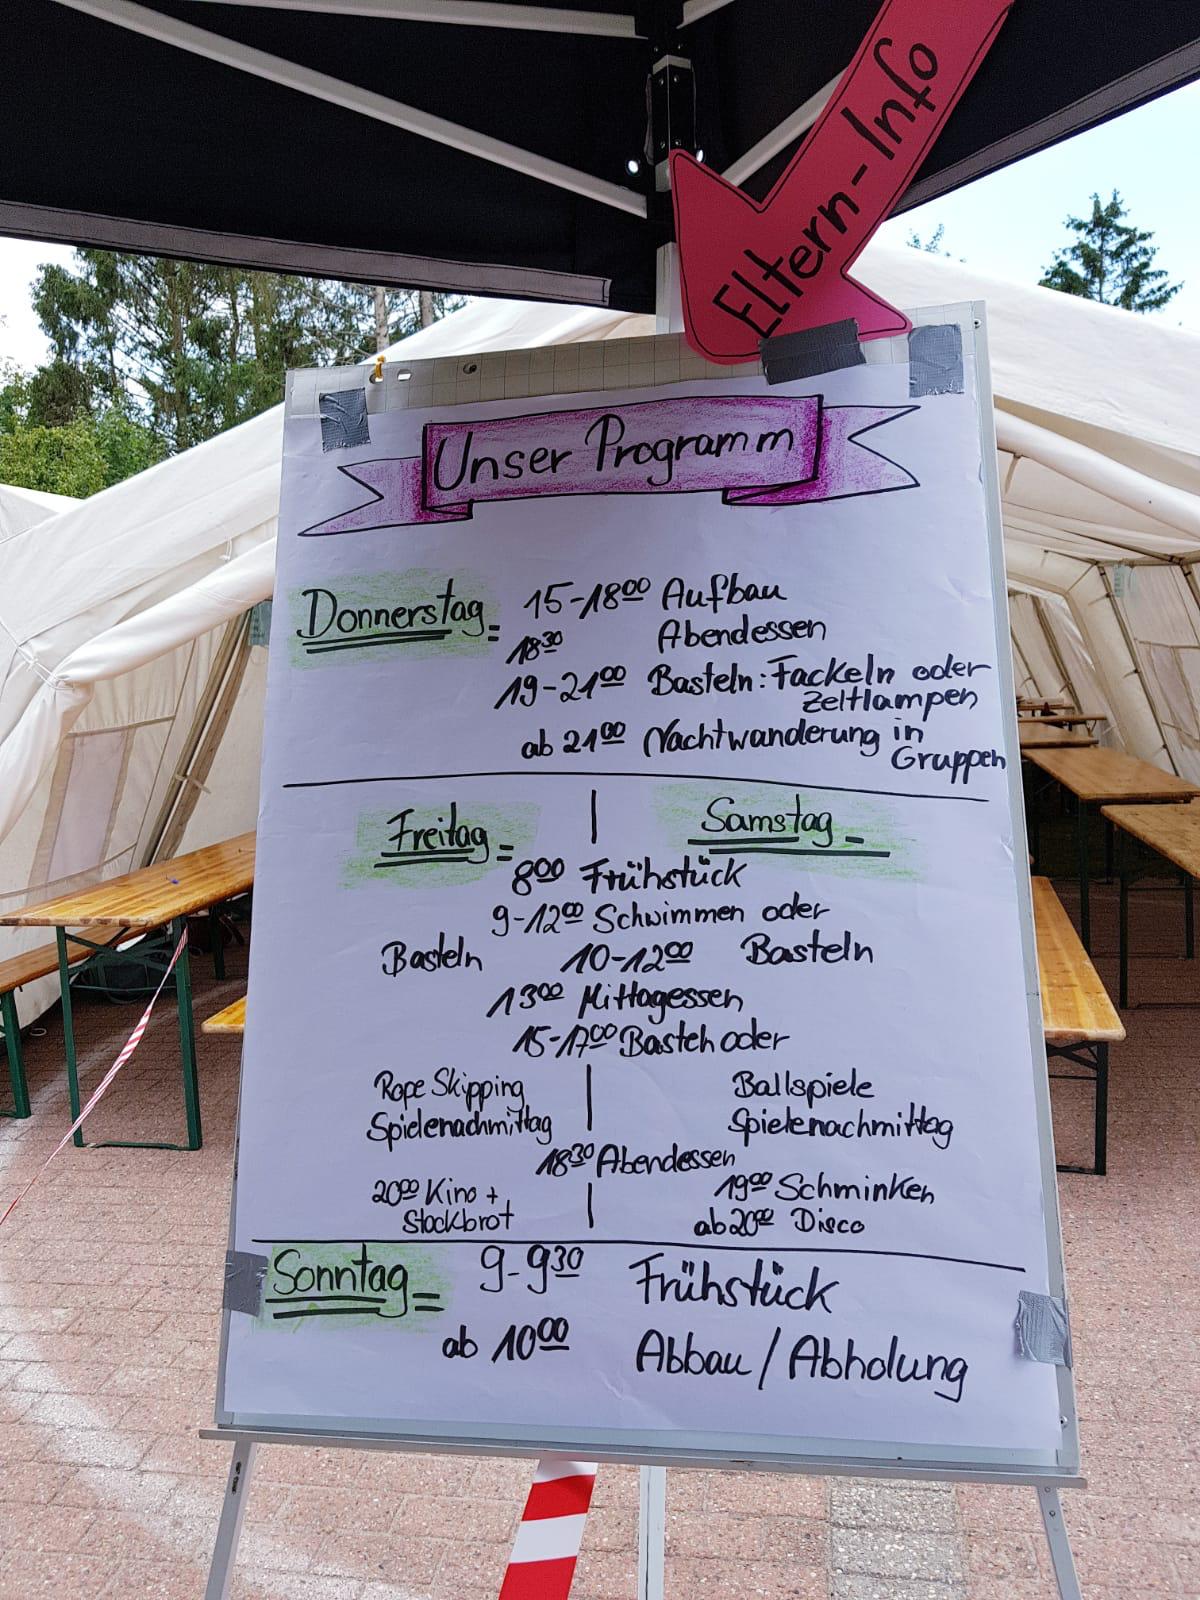 Eltern-Info
Unser Programm
Donnerstag= 15-18⁰⁰ Aufbau
18³⁰ Abendessen
19-21⁰⁰ Basteln: Fackeln oder
Zeltlampen
ab 21⁰⁰ Nachtwanderung in
Gruppen
Freitag= | Samstag=
8⁰⁰ Frühstück
9-12⁰⁰ Schwimmen oder
Basteln 10-12⁰⁰ Basteln
13⁰⁰ Mittagessen
15-17⁰⁰ Basteln oder
Rope Skipping | Ballspiele
Spielenachmittag Spielenachmittag
18³⁰ Abendessen
20⁰⁰ Kino + | 19⁰⁰ Schminken
Stockbrot ab 20⁰⁰ Disco
Sonntag= 9-9³⁰ Frühstück
ab 10⁰⁰ Abbau / Abholung